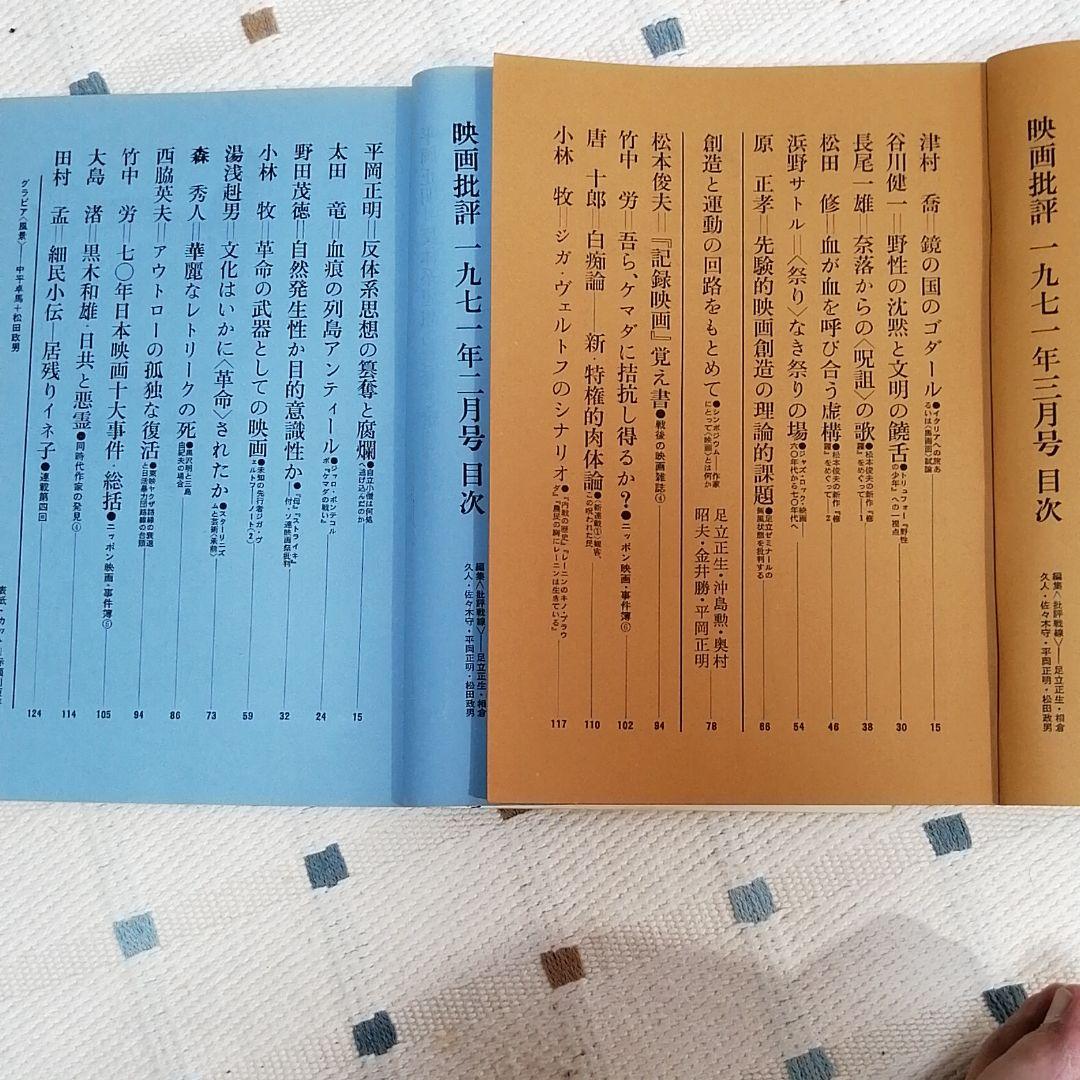 映画批評 一九七一年三月号 目次
編集〈批評戦線〉――足立正生・相倉
久人・佐々木守・平岡正明・松田政男
津村 喬 鏡の国のゴダール
●イタリアへの旅あ
るいは〈黒画面〉試論
15
谷川健一=野性の沈黙と文明の饒舌
●トリュフォー『野性
の少年』への一視点
30
長尾一雄 奈落からの〈呪詛〉の歌
●松本俊夫の新作『修
羅』をめぐって―1
38
松田 修=血が血を呼び合う虚構
●松本俊夫の新作『修
羅』をめぐって―2
46
浜野サトル=〈祭り〉なき祭りの場
●ジャズ・ロック・映画―
六〇年代から七〇年代へ
54
原 正孝=先験的映画創造の理論的課題
●足立ゼミナールの
無風状態を批判する
66
創造と運動の回路をもとめて
●シンポジウム――作家
にとって〈映画〉とは何か
足立正生・沖島勲・奥村
昭夫・金井勝・平岡正明
78
松本俊夫=『記録映画』覚え書
●戦後の映画雑誌④
94
竹中 労=吾ら、ケマダに拮抗し得るか?
●ニッポン映画・事件簿⑥
102
唐 十郎 白痴論――新・特権的肉体論
●新連載①―観客、
この呪われた民
110
小林 牧=ジガ・ヴェルトフのシナリオ
●『内戦の歴史』『レーニンのキノ・プラウ
ダ』『農民の胸にレーニンは生きている』
117
映画批評 一九七一年二月号 目次
編集〈批評戦線〉――足立正生・相倉
久人・佐々木守・平岡正明・松田政男
平岡正明=反体系思想の簒奪と腐爛
●自立小僧は何処
へ逃げ込んだのか
15
太田 竜=血痕の列島アンティール
●ジッロ・ポンテコル
ボ『ケマダの戦い』
24
野田茂徳=自然発生性か目的意識性か
●『母』『ストライキ』
付・ソ連映画祭批判
32
小林 牧=革命の武器としての映画
●未知の先行者ジガ・ヴ
ェルトフ・ノート〈2〉
59
湯浅赳男=文化はいかに〈革命〉されたか
●スターリニズ
ムと芸術〈承前〉
73
森 秀人=華麗なレトリークの死
●黒沢明と三島
由紀夫の場合
86
西脇英夫=アウトローの孤独な復活
●東映ヤクザ路線の衰退
と日活暴力団路線の台頭
94
竹中 労=七〇年日本映画十大事件・総括
●ニッポン映画・事件簿⑤
105
大島 渚=黒木和雄・日共と悪霊
●同時代作家の発見④
114
田村 孟=細民小伝―居残りイネ子
●連載第四回
124
グラビア〈風景〉――中平卓馬+松田政男
表紙・カット